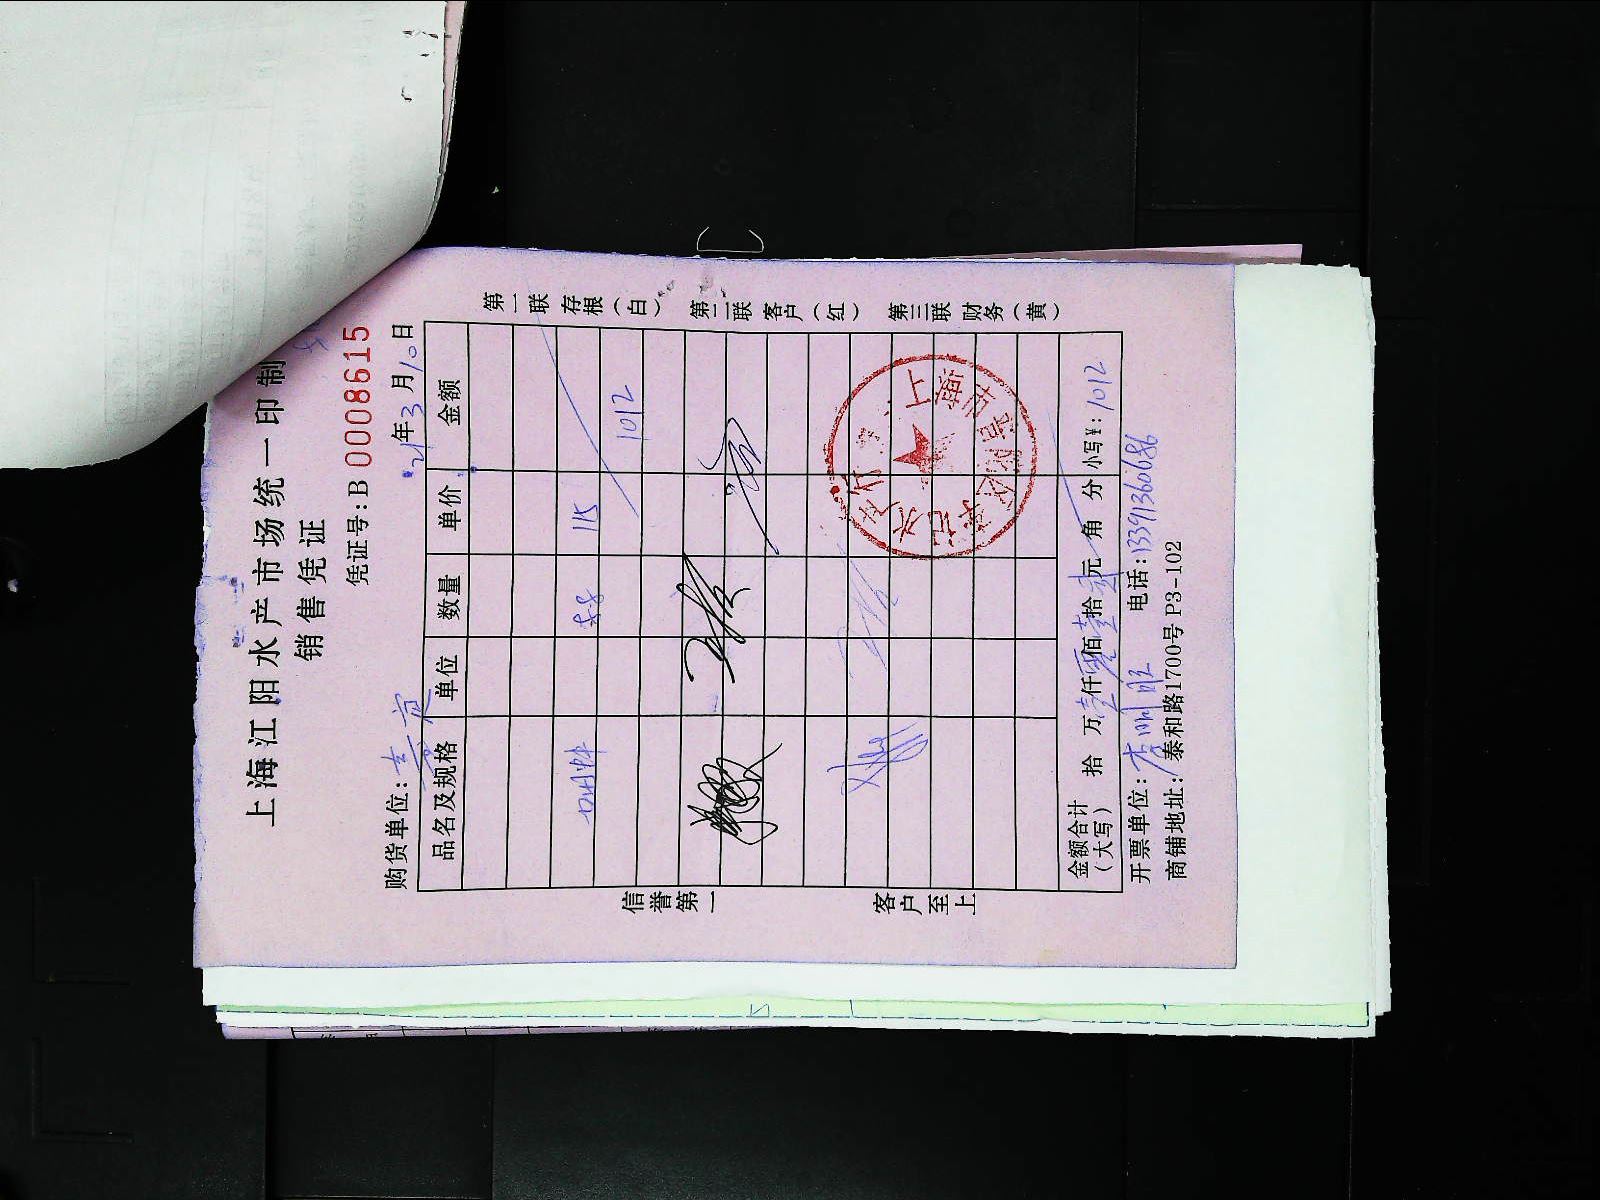 上海江阳水产市场统一印制
销售凭证
凭证号:B 0008615
购货单位: 21年3月10日
品名及规格 单位 数量 单价 金额
8.8 115
1012
信誉第一
客户至上
第一联 存根(白) 第二联 客户(红) 第三联 财务(黄)
金额合计(大写) 拾 万壹仟零佰壹拾贰元 角 分 小写¥:1012
开票单位:李明旺 电话:13391360686
商铺地址:泰和路1700号 P3-102
上海市宝山区李记水产行